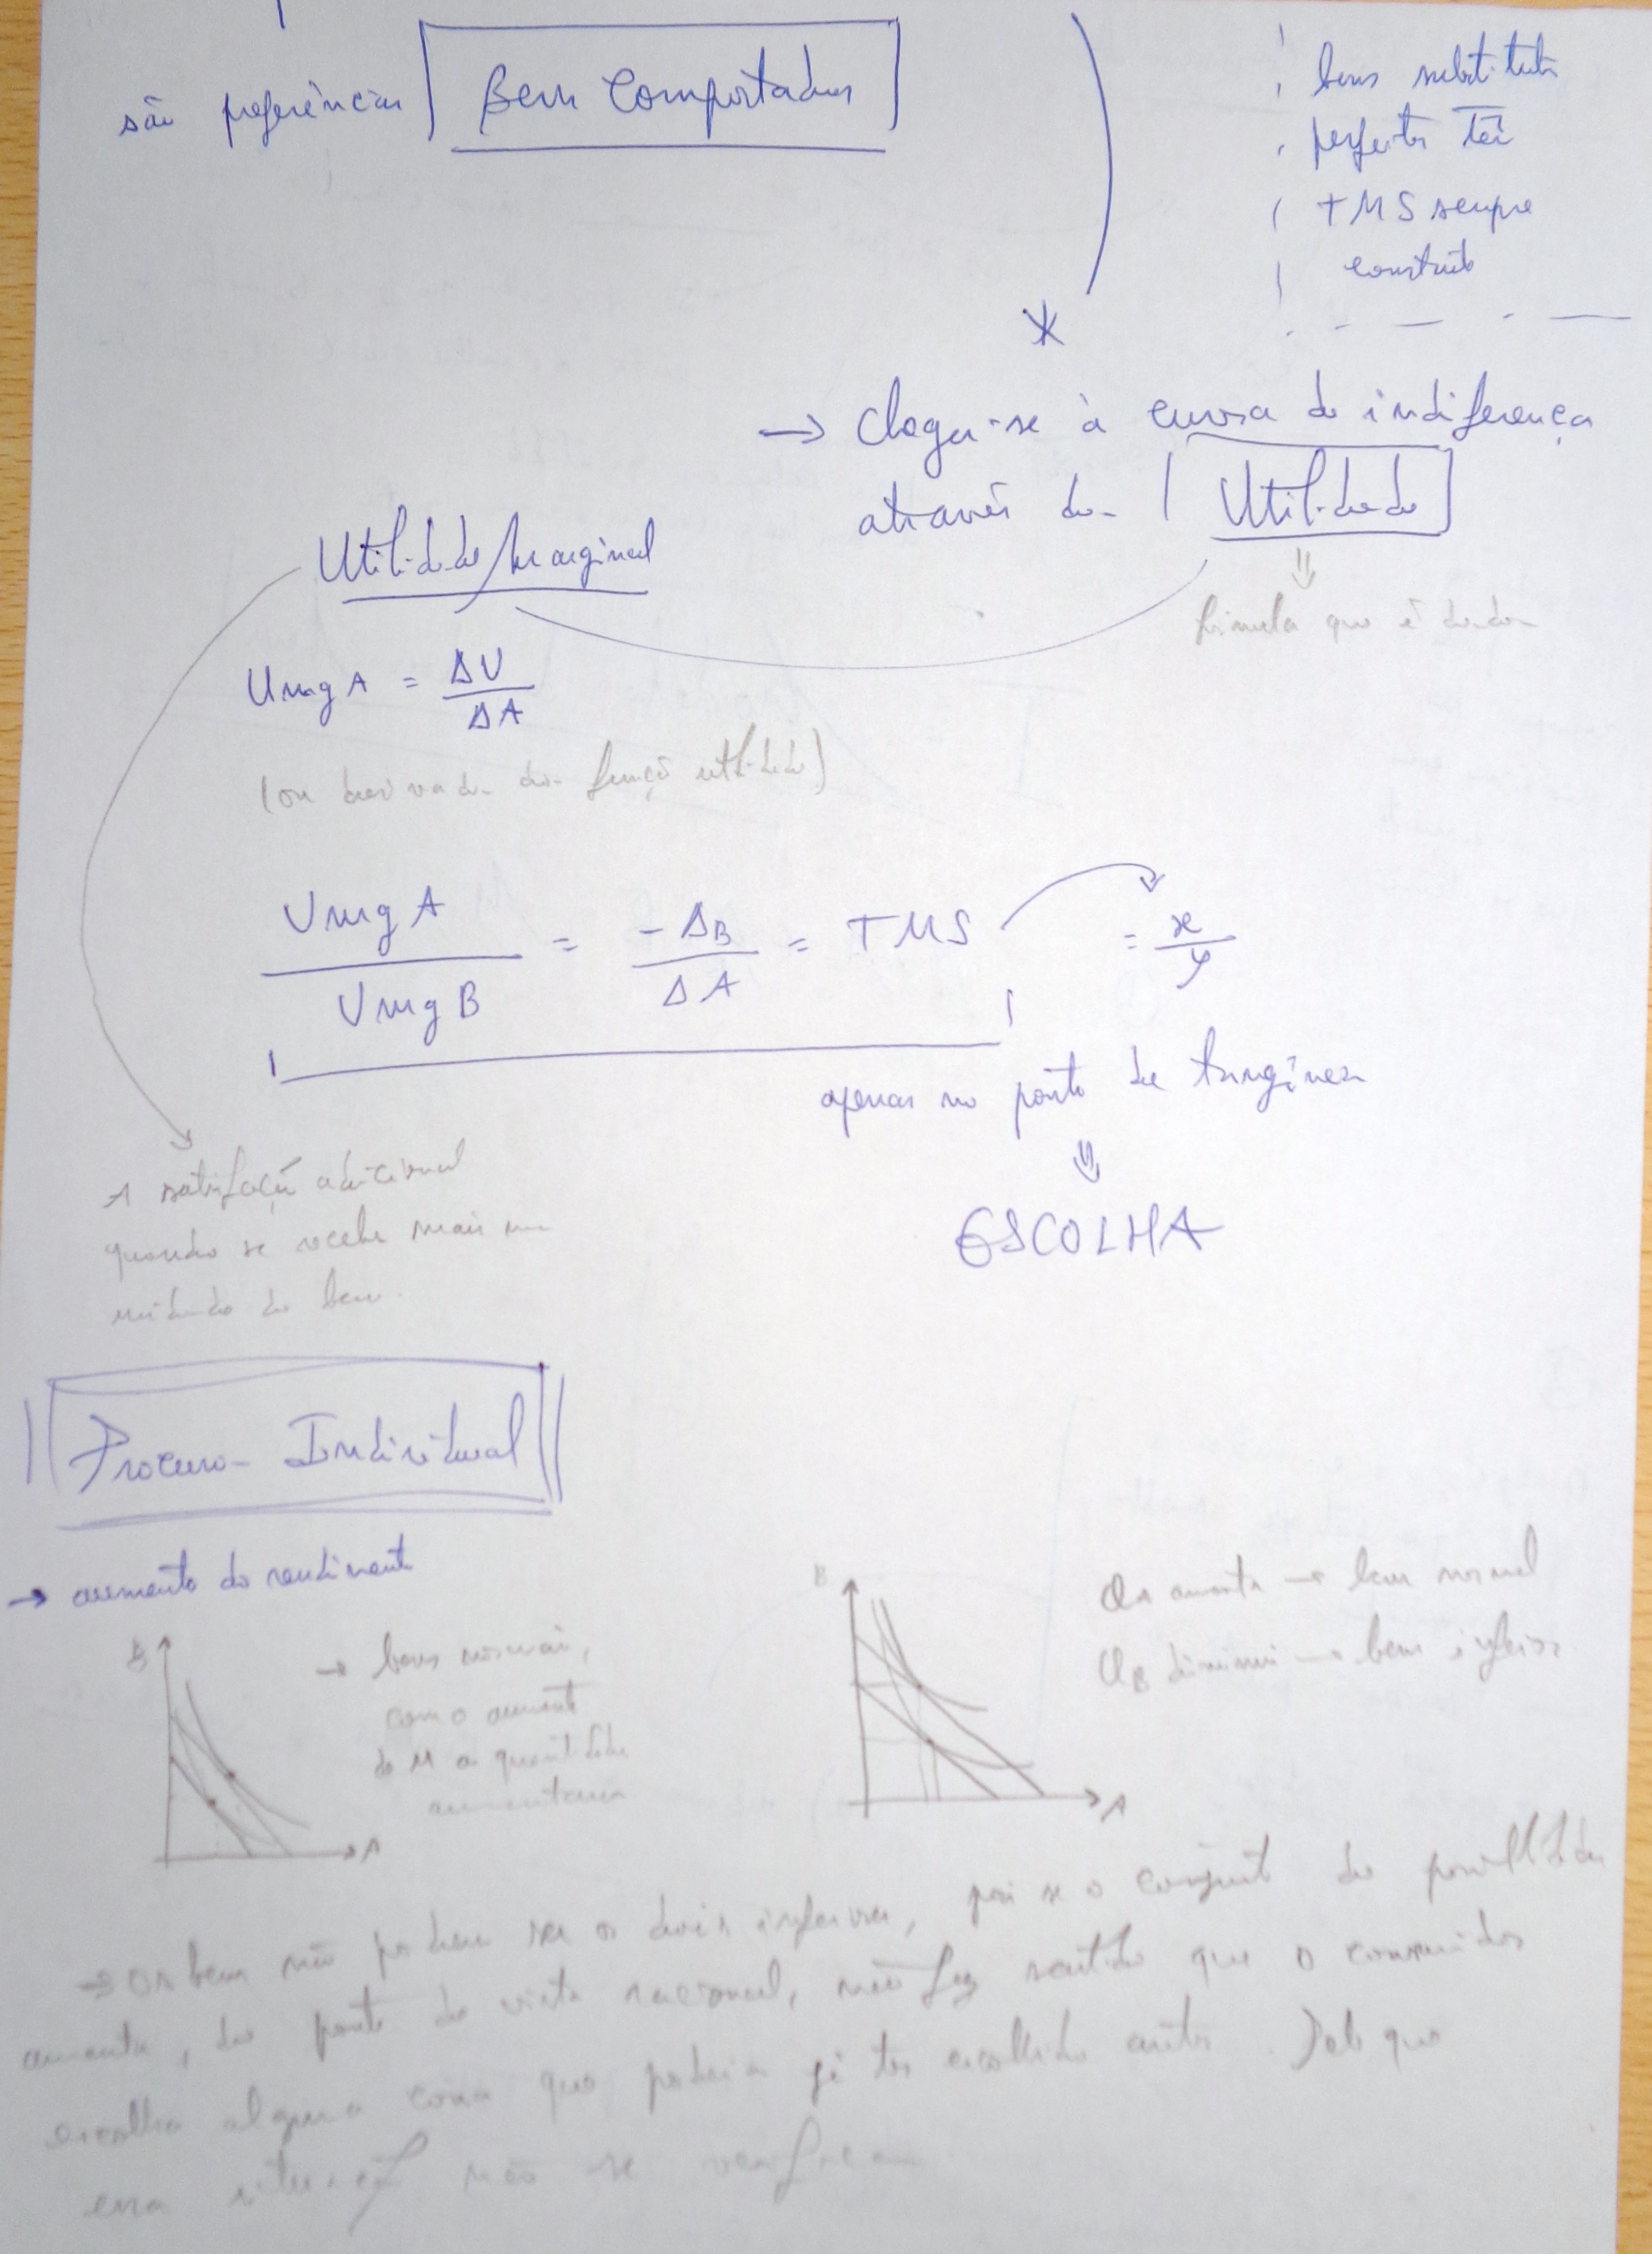 são preferências Bem Comportadas
bens substitutos
perfeitos têm
TMS sempre
constante
*
→ Chega-se à curva de indiferença
através da Utilidade
fórmula que é dada
Utilidade Marginal
UmgA = ΔU/ΔA
(ou derivada da função utilidade)
UmgA/UmgB = -ΔB/ΔA = TMS = x/y
apenas no ponto de tangência
⇓
ESCOLHA
A satisfação adicional
quando se recebe mais uma
unidade do bem.
Procura Individual
→ aumento do rendimento
B
A
→ bens normais,
com o aumento
do M a quantidade
aumentam
B
A
QA aumenta → bem normal
QB diminui → bem inferior
→ Os bens não podem ser os dois inferiores, pois se o conjunto de possibilidades
aumenta, do ponto de vista racional, não faz sentido que o consumidor
escolha alguma coisa que poderia já ter escolhido antes. que
essa situação não se verifica